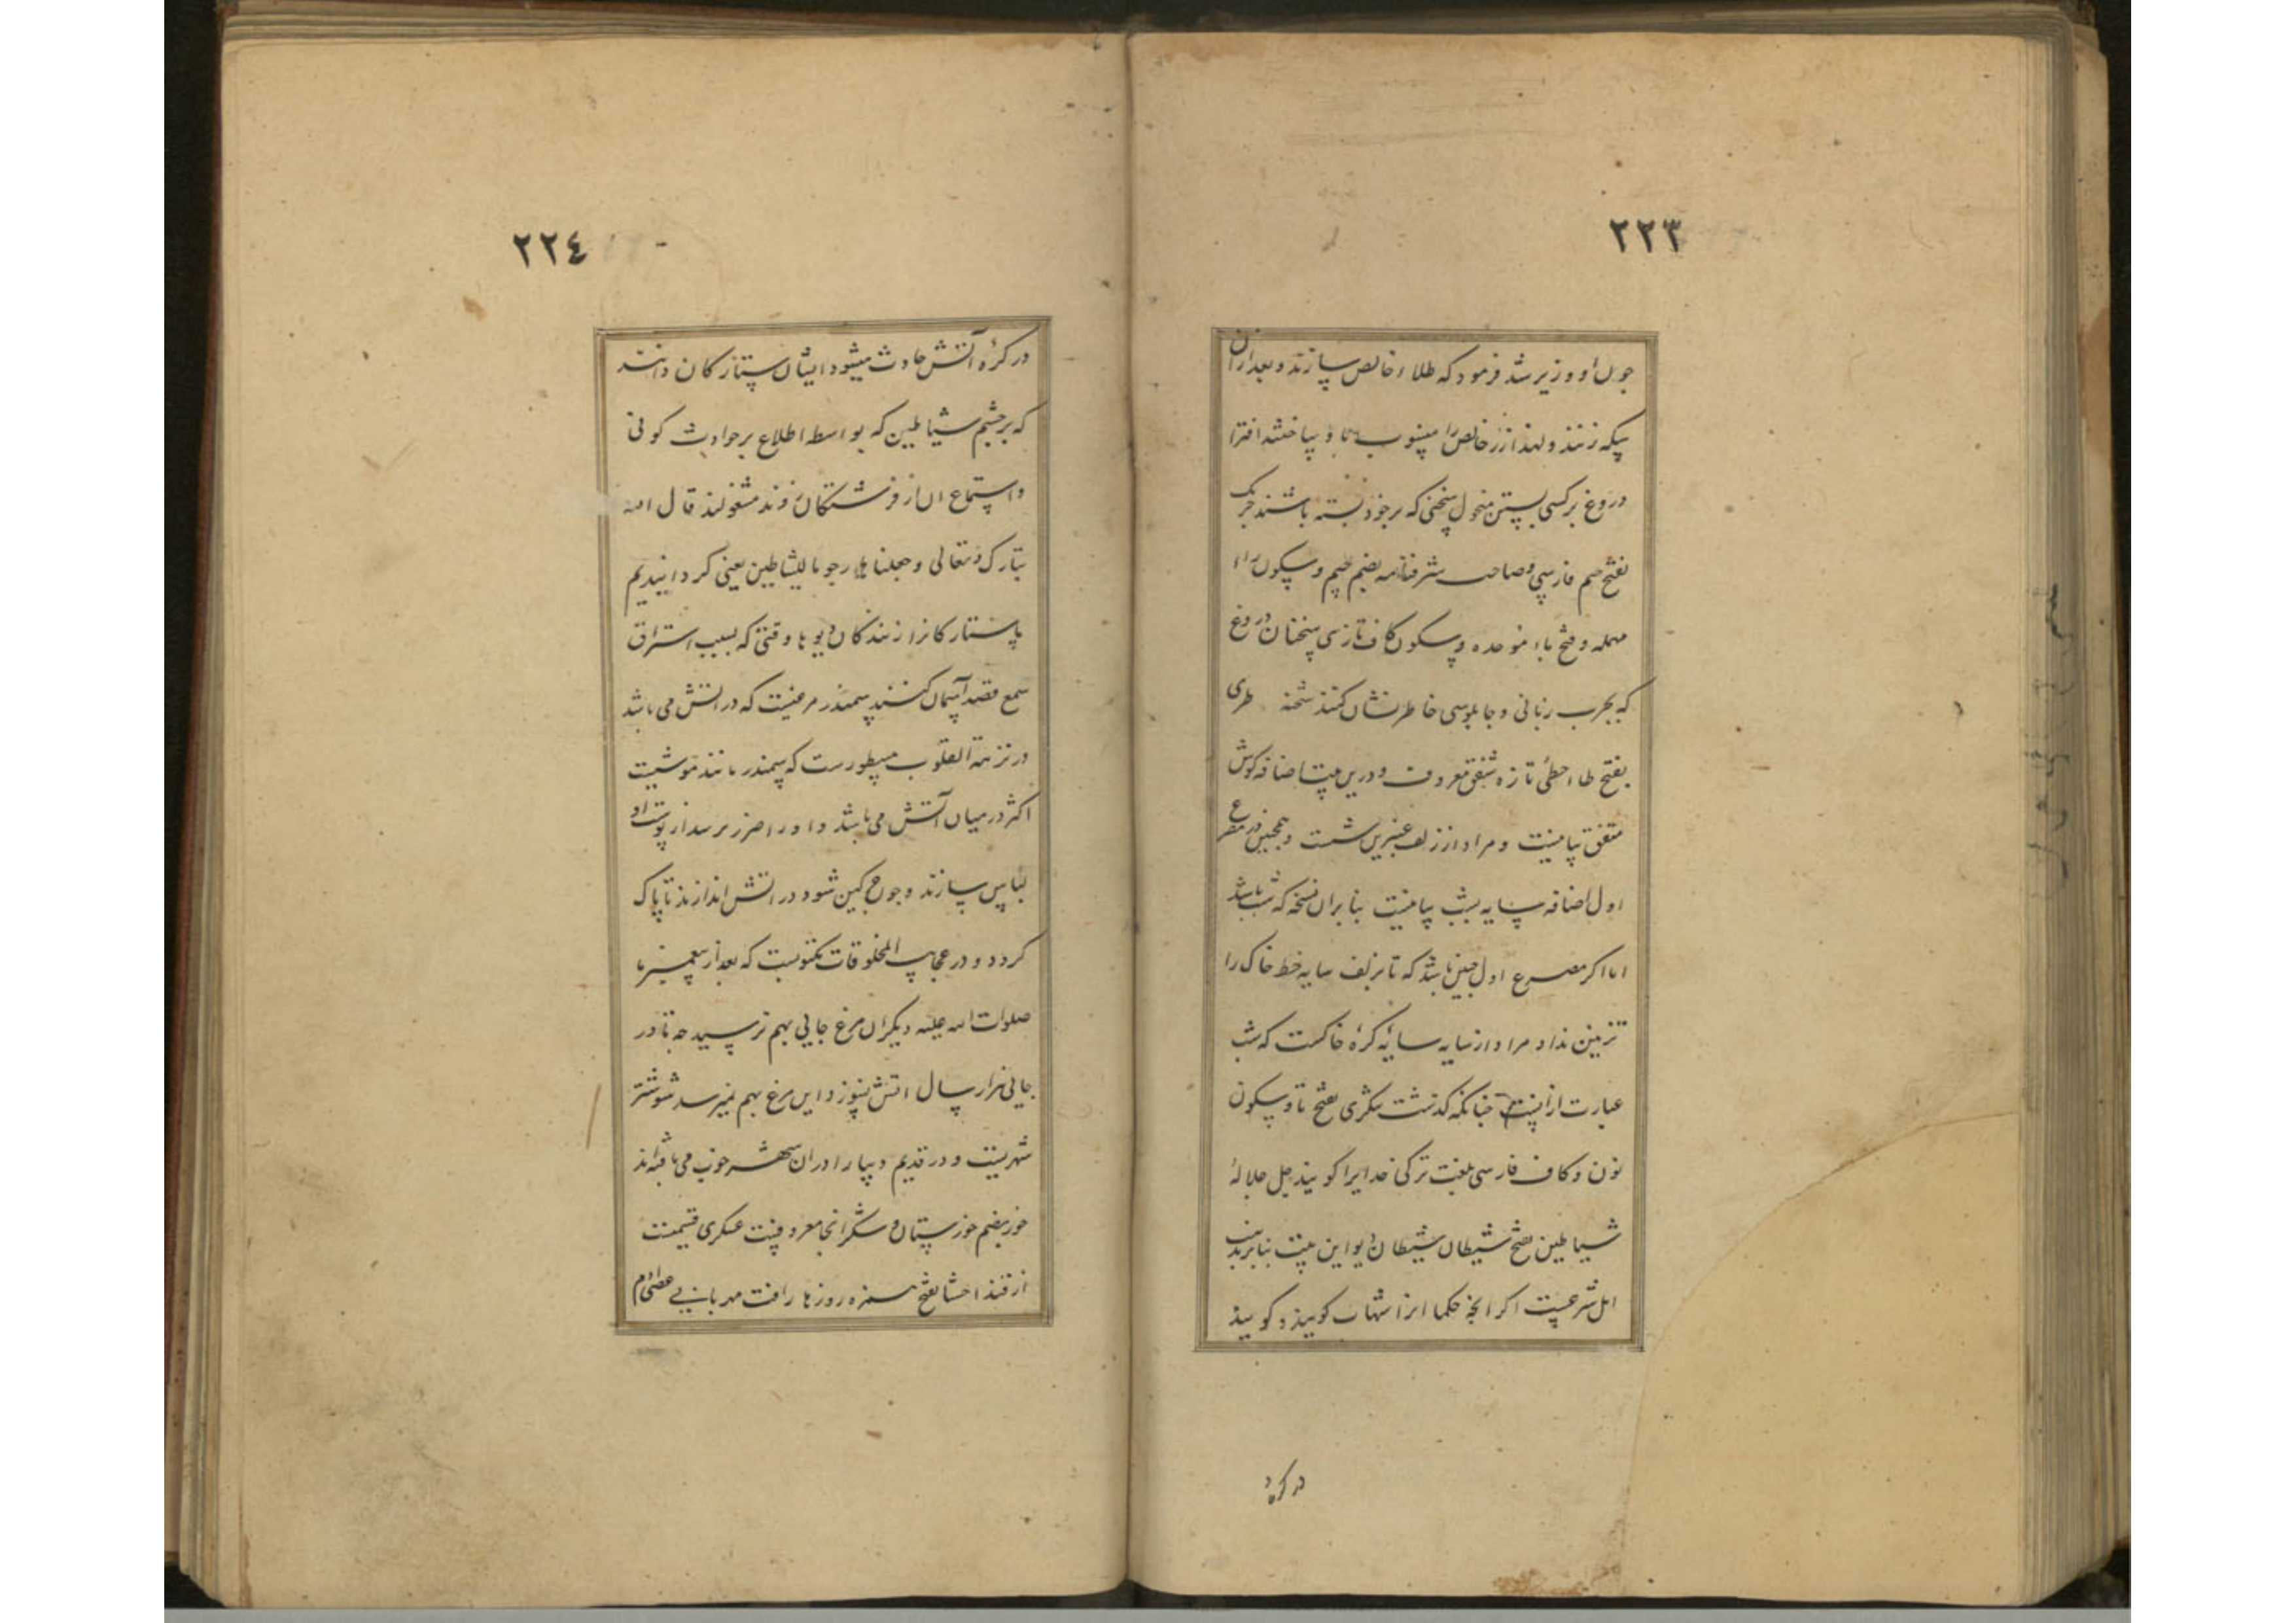 ٢٢٣
چون او وزیر شد فرمود که طلاء خالص سازند و بعد ازان
سکه زنند و لهذا زر خالص را منسوب باو ساخته افترا
دروغ بر کسی بستن منحول سخنی که بر خود بسته باشند چربک
بفتح جیم فارسی و صاحب شرفنامه بضم جیم و سکون راء
مهمله و فتح باء موحده و سکون کاف تازی سخنان دروغ
که بچرب زبانی و چاپلوسی خاطر نشان کنند شحنه طری
بفتح طاء حطی تازه شفق معروف و درین بیت اضافه کوش
شفق بیانیست و مراد از زلف عنبرین شبست و همچنین در مصرع
اول اضافه سایه شب بیانیست بنابران نسخه که شب باشد
اما اکر مصرع اول چنین باشد که تا بزلف سایه خط خاک را
تزیین نداد مراد از سایه سایهٔ کرهٔ خاکست که شب
عبارت ازانست چنانکه کذشت تنکری بفتح تا و سکون
نون و کاف فارسی بلغت ترکی خدایرا کویند جل جلاله
شیاطین جمع شیطان شیطان دیو این بیت بنابر مذهب
اهل شرعست اکر انچه حکما انرا شهاب کویند و کویند
در کره
٢٢٤
در کرهٔ آتش حادث میشود ایشان ستارکان دانند
که بر چشم شیاطین که بواسطه اطلاع بر حوادث کونی
و استماع ان از فرشتکان زنند مشغولند قال الله
تبارک و تعالی و جعلناها رجوما للشیاطین یعنی کردانیدیم
ما ستارکانرا زنندکان دیوها وقتی که بسبب استراق
سمع قصد آسمان کنند سمندر مرغیست که در اتش می باشد
در نزهة القلوب مسطورست که سمندر مانند موشیست
اکثر در میان آتش می باشد و او را ضرر نرسد از پوست او
لباس سازند و چون چرکین شود در اتش اندازند تا پاک
کردد و در عجایب المخلوقات مکتوبست که بعد از پیغمبر ما
صلوات الله علیه دیکر ان مرغ جایی بهم نرسید چه تا در
جایی هزار سال اتش نسوزد این مرغ بهم نمیرسد شوشتر
شهریست و در قدیم دیبا را دران شهر خوب می بافته اند
خوز بضم خوزستان و شکر انجا معروفست عسکری قسمیست
از قند احشا بفتح همزه روزها رافت مهربانی